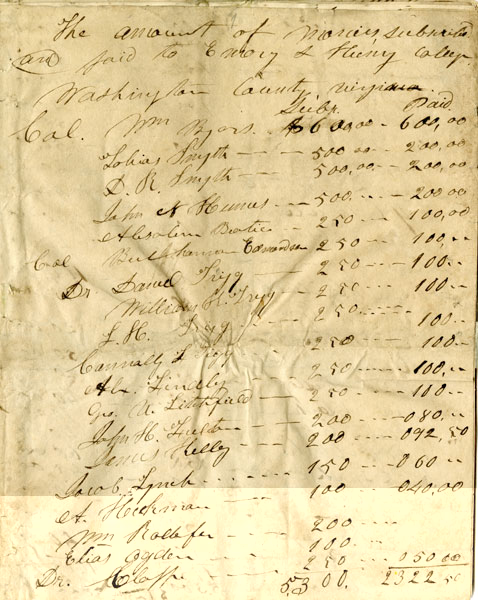 The amount of Monies subscribed
and paid to Emory & Henry College
Washington County, Virginia.
Subs. Paid
Col. Wm Byars. $600,00 -- 600,00
Tobias Smyth -- 500 00 -- 200,00
D. R. Smyth -- 500,00 -- 200,00
John N Humes -- 500 -- 200 00
Absalem Beatie -- 250 -- 100,00
Col Buchhannan Edmondson 250 -- 100,--
Dr Daniel Trigg -- 250 -- 100--
William H. Trigg -- 250 -- 100,--
L. H. Trigg -- 250 ---- 100
Connally F Trigg 100--
Alx. Findly -- 250 -- 100,--
Geo. V. Litchfield -- 250 -- 100--
John H. Fulton -- 200 -- 080,--
James Kelly -- 200 -- 092,50
Jacob Lynch -- 150 -- 060 --
A. Hickman -- 100 -- 040,00
Wm 200 --
Elias Ogden -- 100 --
Dr. -- 250 -- 050 00
5300. 2322 50